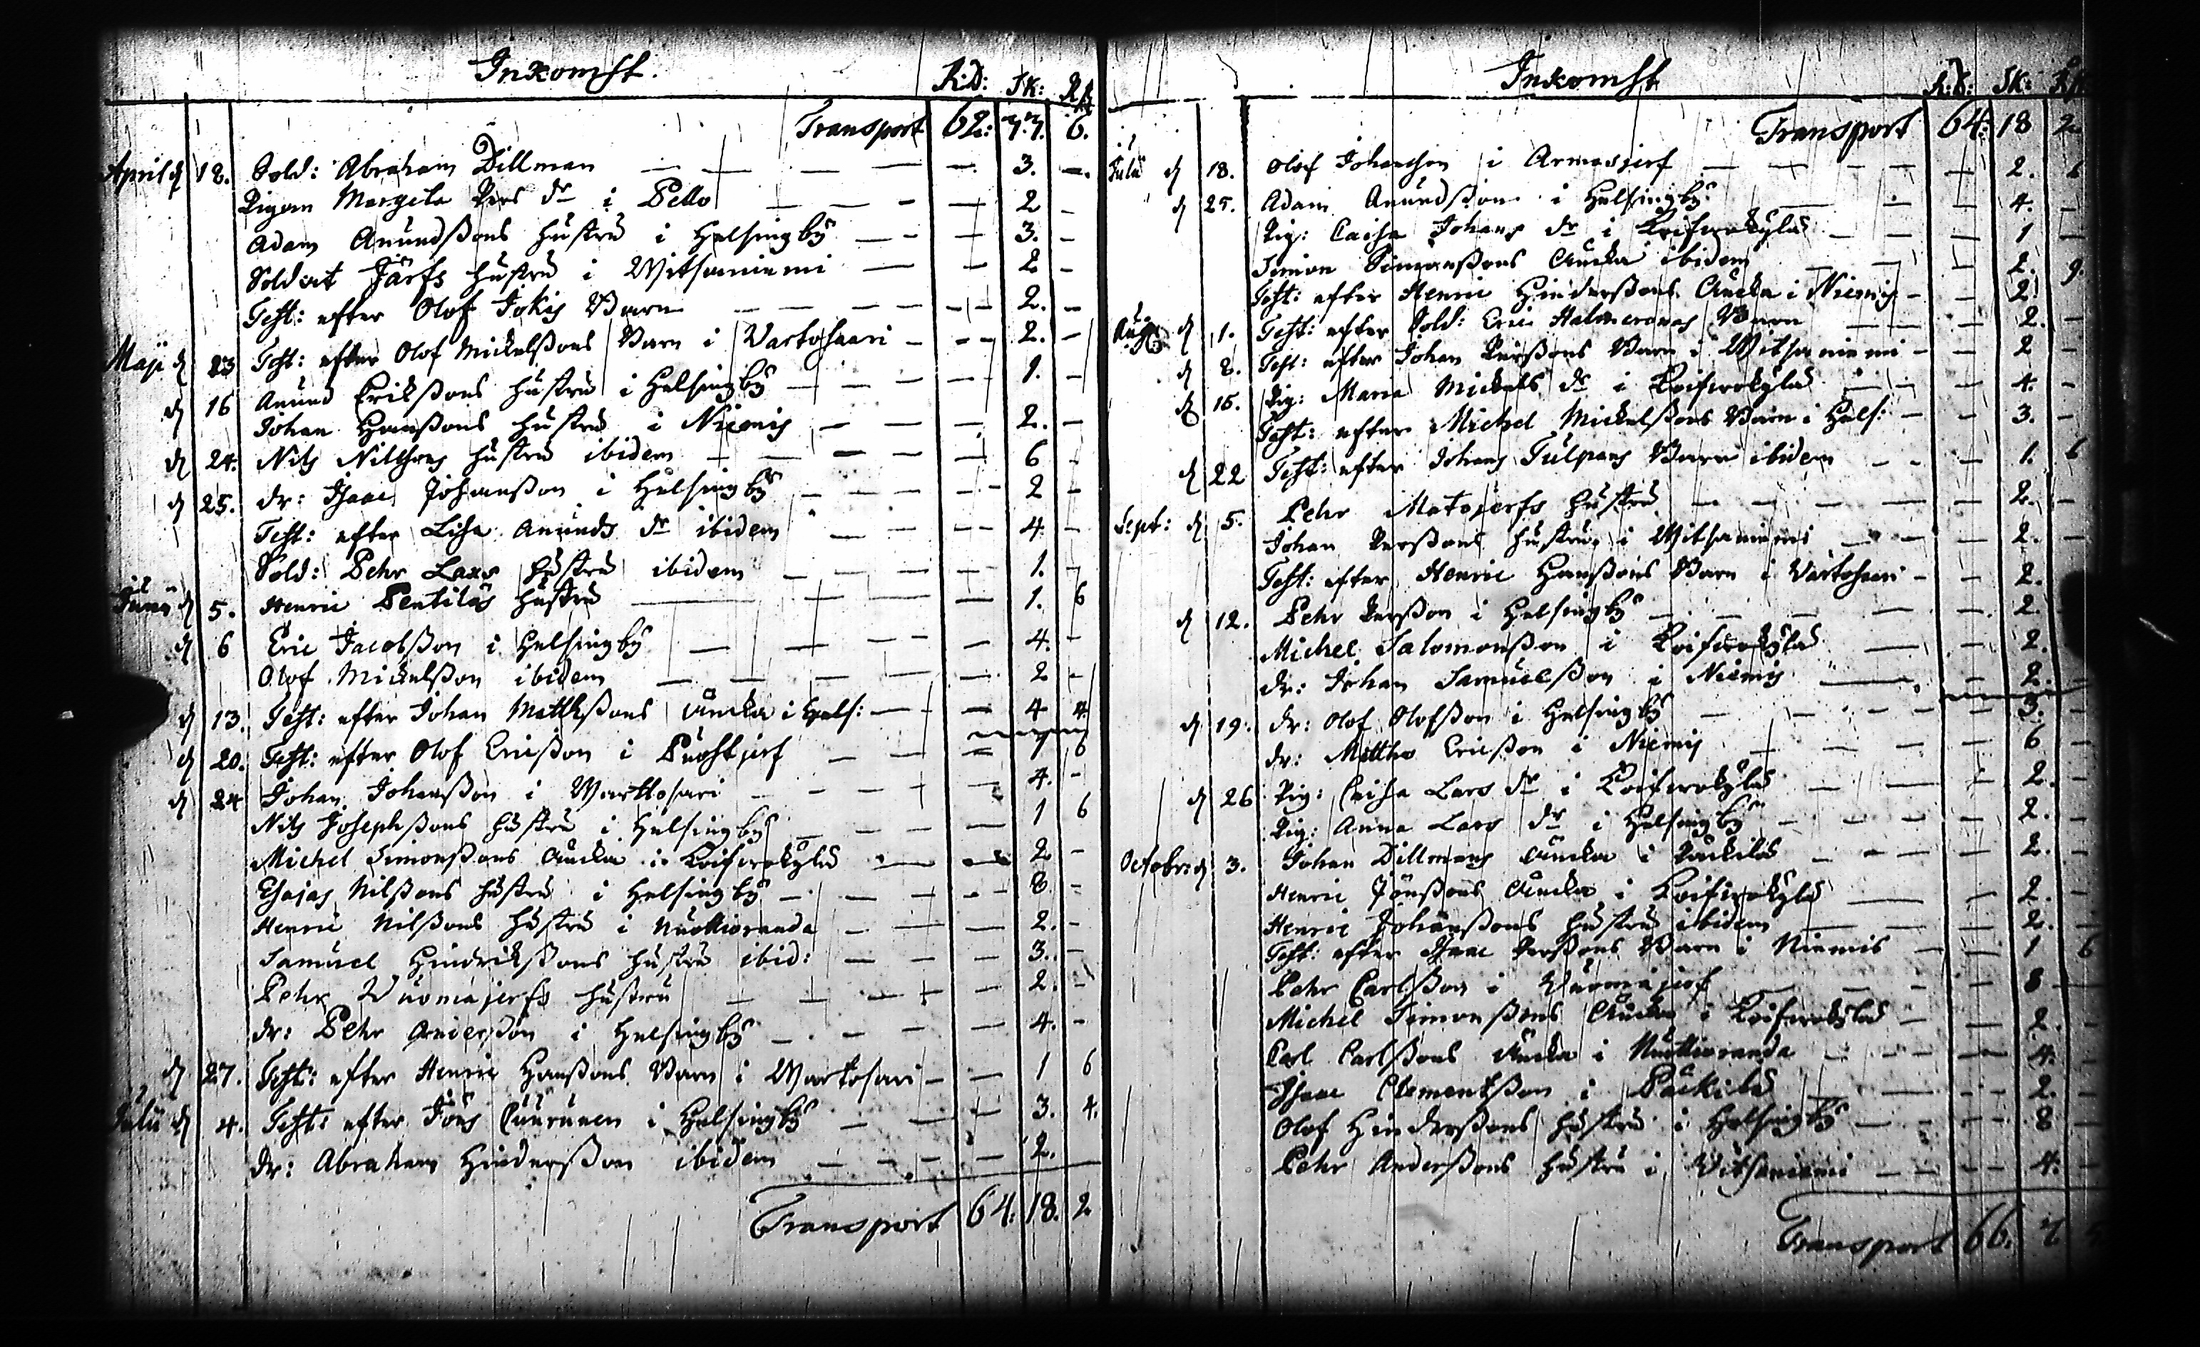 Inkomst. R:d: Sk: Rst
Transport 62: 77. 6.
April d 18. Sold: Abraham Dillman — 3. —
Pigan Margeta Pers dr i Pello — 2 —
Adam Anundßons hustru i Helsingby — 3. —
Soldat Järfs hustru i Witsaniemi — 2 —
Test: efter Olof Jokis Barn — 2. —
Maji d 23 Test: efter Olof Mickelßons Barn i Vartosaari — 2. —
d 16 Anund Erikßons hustru i Helsingby — 1. —
Johan Hansßons hustru i Niemis — 2. —
d 24. Nils hustru ibidem — 6 —
d 25. dr: Isaac Johanßon i Helsingby — 2 —
Test: efter Lisa Anunds dr ibidem — 4 —
Sold: Pehr Laxs hustru ibidem — 1. —
Junii d 5. Henric Pentiläs hustru — 1. 6
d 6 Eric Jacobßon i Helsingby — 4. —
Olof Mickelßon ibidem — 2 —
d 13. Test: efter Johan Matthßons Ancka i Hels: — 4 4.
d 20. Test: efter Olof Ericßon i Puostjerf — 1 6
d 24 Johan Johanßon i Warttosari — 4. —
Nils Josephßons hustru i Helsingby — 1 6
Michel Simonßons Ancka i Koifwokylä — 2 —
Esajas Nilßons hustru i Helsingby — 8. —
Henric Nilßons hustru i Nuottioranda — 2. —
Samuel Hindrikßons hustru ibid: — 3. —
Pehr Wuomajerfs hustru — 2. —
dr: Pehr Anderßon i Helsingby — 4. —
d 27. Test: efter Henric Hansßons Barn i Wartosari — 1 6
Julii d 4. Test: efter Jöns i Helsingby — 3. 4.
dr: Abraham Hinderßon ibidem — 2.
Transport 64: 18. 2
Inkomst R:d: Sk: Rst
Transport 64: 18 2
Julii d 18. Olof Johansson i Armasjerf — 2. 6
d 25. Adam Anundßon i Helsingby — 4. —
Pig: Caisa Johans dr i Koifwokylä — 1 —
Simon Simonßons Ancka ibidem — 2. 9.
Test: efter Henric Hinderßons Ancka i Niemis — 2. —
Aug d 1. Test: efter Sold: Eric Barn — 2. —
d 8. Test: efter Johan Perßons Barn i Witsaniemi — 2 —
d 15. Pig: Maria Mickels dr i Koifwokylä — 4. —
Test: efter Michel Mickelßons Barn i Hels: — 3. —
d 22 Test: efter Johans Tulpans Barn ibidem — 1. 6
Sept: d 5. Pehr Matojerfs hustru — 2. —
Johan Perßons hustru i Witsaniemi — 2. —
Test: efter Henric Hansßons Barn i Vartosaari — 2.
d 12. Pehr Perßon i Helsingby — 2. —
Michel Salomonßon i Koifwokylä — 2.
dr: Johan Samuelßon i Niemis — 2. —
d 19. dr: Olof Olofßon i Helsingby — 3. —
dr: Matths Ericßon i Niemis — 6 —
d 26 Pig: Caisa Lars dr i Koifwokylä — 2. —
Pig: Anna Lars dr i Helsingby — 2. —
Octobr: d 3. Johan Dillmans Ancka i Päckilä — 2. —
Henric Jönßons Ancka i Koifwokylä — 2. —
Henric Johanßons hustru ibidem — 2. —
Test: efter Isaac Perßons Barn i Niemis — 1 6
Pehr Carlßon i Wuomajerf — 8 —
Michel Simonßons Ancka i Koifwokylä — 2. —
Carl Carlßons Ancka i Nuottioranda — 4. —
Isaac Clementßon i Päckilä — 2. —
Olof Hinderßons hustru i Helsingby — 8 —
Pehr Anderßons hustru i Witsaniemi — 4. —
Transport 66. 7